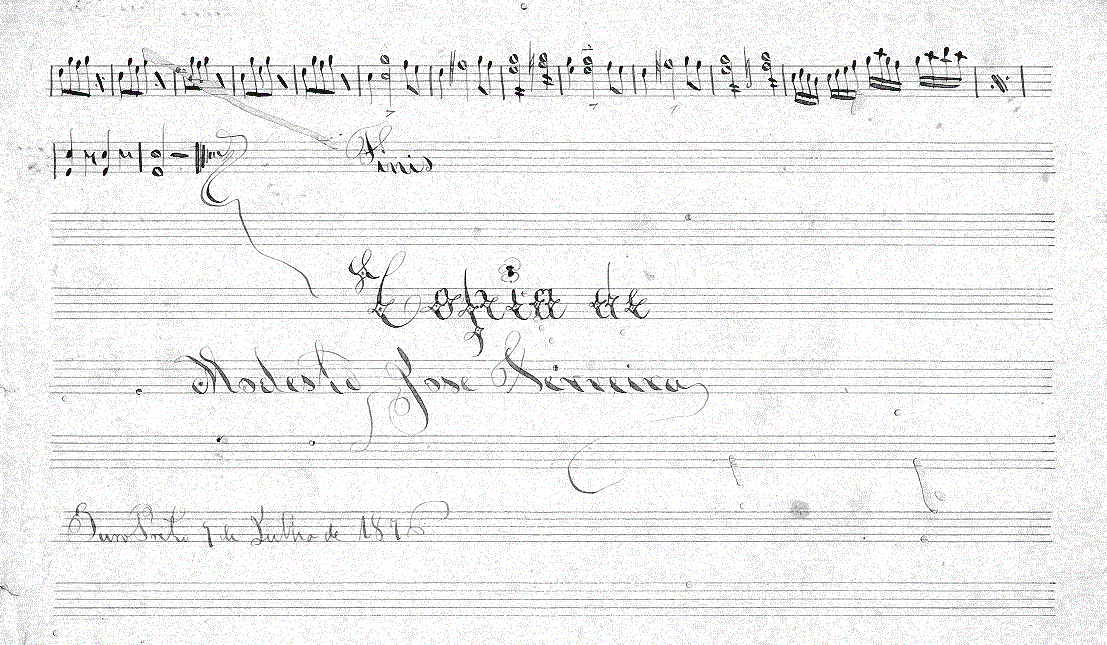 Finis
Copia de
Modesto Jose Ferreira
Ouro Preto de Julho de